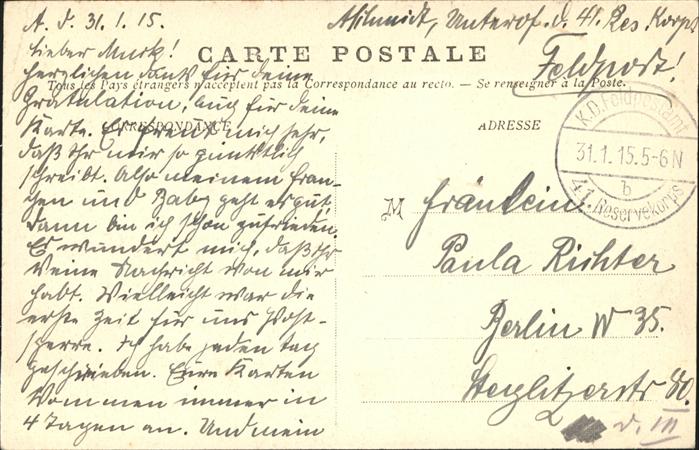 A. d. 31.1.15.
Aschmidt, Unterof. d. 41. Res Korps
Feldpost!
CARTE POSTALE
Tous les Pays étrangers n'acceptent pas la Correspondance au recto. — Se renseigner à la Poste.
CORRESPONDANCE
ADRESSE
Lieber Murtz!
Herzlichen Dank für deine
Gratulation, auch für deine
Karte. Es freut mich sehr,
daß Ihr mir so pünktlich
schreibt. Also meinem Frau-
chen und Baby geht es gut,
dann bin ich schon zufrieden.
Es wundert mich, daß Ihr
keine Nachricht von mir
habt. Vielleicht war die
erste Zeit für uns Post-
sperre. Ich habe jeden Tag
geschrieben. Eure Karten
kommen immer in
4 Tagen an. Und mein
K.D. Feldpostamt
31.1.15.5-6N
b
41. Reservekorps
M
Fräulein
Paula Richter
Berlin W 35.
Steglitzerstr 80.
v. III